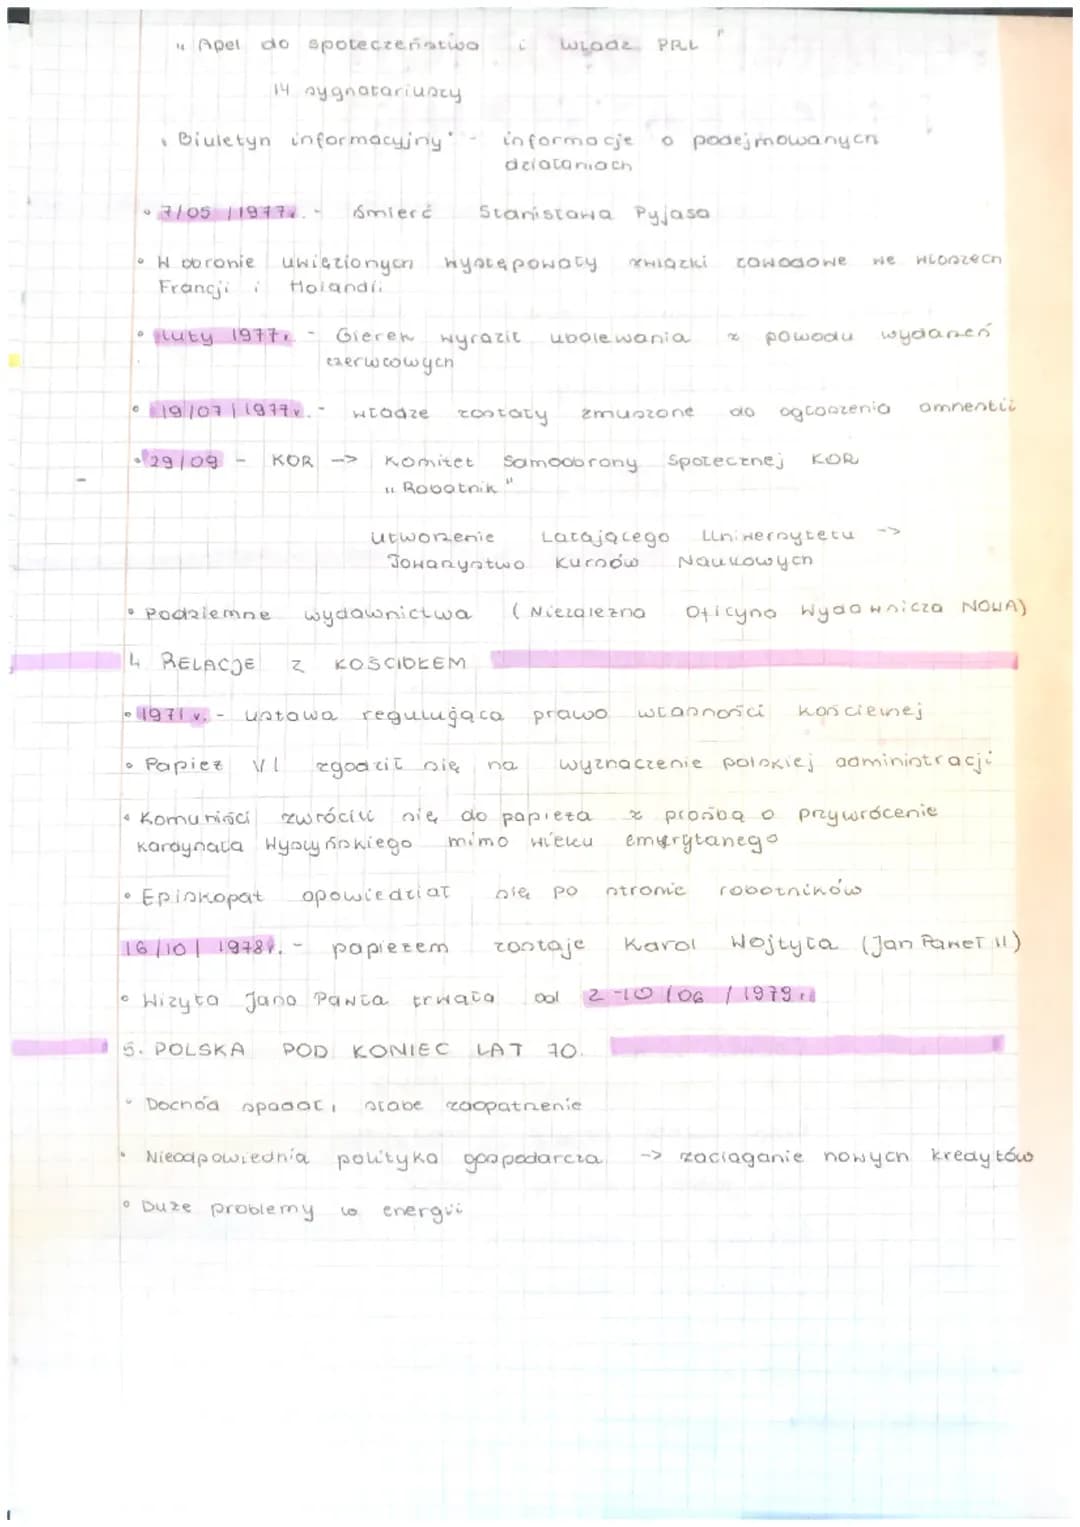 "Apel do społeczeństwa i władz PRL"
14 sygnatariuszy
"Biuletyn informacyjny" - informacje o podejmowanych
działaniach
• 7/05/1977r. - śmierć Stanisława Pyjasa
• W obronie uwięzionych występowały związki zawodowe we Włoszech
Francji i Holandii
• luty 1977r. - Gierek wyraził ubolewania z powodu wydarzeń
czerwcowych
• 19/07/1977r. - władze zostały zmuszone do ogłoszenia amnestii
• 29/09 - KOR -> Komitet Samoobrony Społecznej KOR
"Robotnik"
utworzenie Latającego Uniwersytetu ->
Towarzystwo Kursów Naukowych
• Podziemne wydawnictwa (Niezależna Oficyna Wydawnicza NOWA)
4 RELACJE Z KOŚCIOŁEM
• 1971r. - ustawa regulująca prawo własności kościelnej
• Papież VI zgodził się na wyznaczenie polskiej administracji
• Komuniści zwrócili się do papieża z prośbą o przywrócenie
kardynała Wyszyńskiego mimo wieku emerytanego
• Episkopat opowiedział się po stronie robotników
16/10/1978r. - papieżem zostaje Karol Wojtyła (Jan Paweł II)
• Wizyta Jana Pawła trwała od 2-10/06/1979r.
5. POLSKA POD KONIEC LAT 70.
• Dochód spadał, słabe zaopatrzenie
• Nieodpowiednia polityka gospodarcza -> zaciąganie nowych kredytów
• Duże problemy w energii